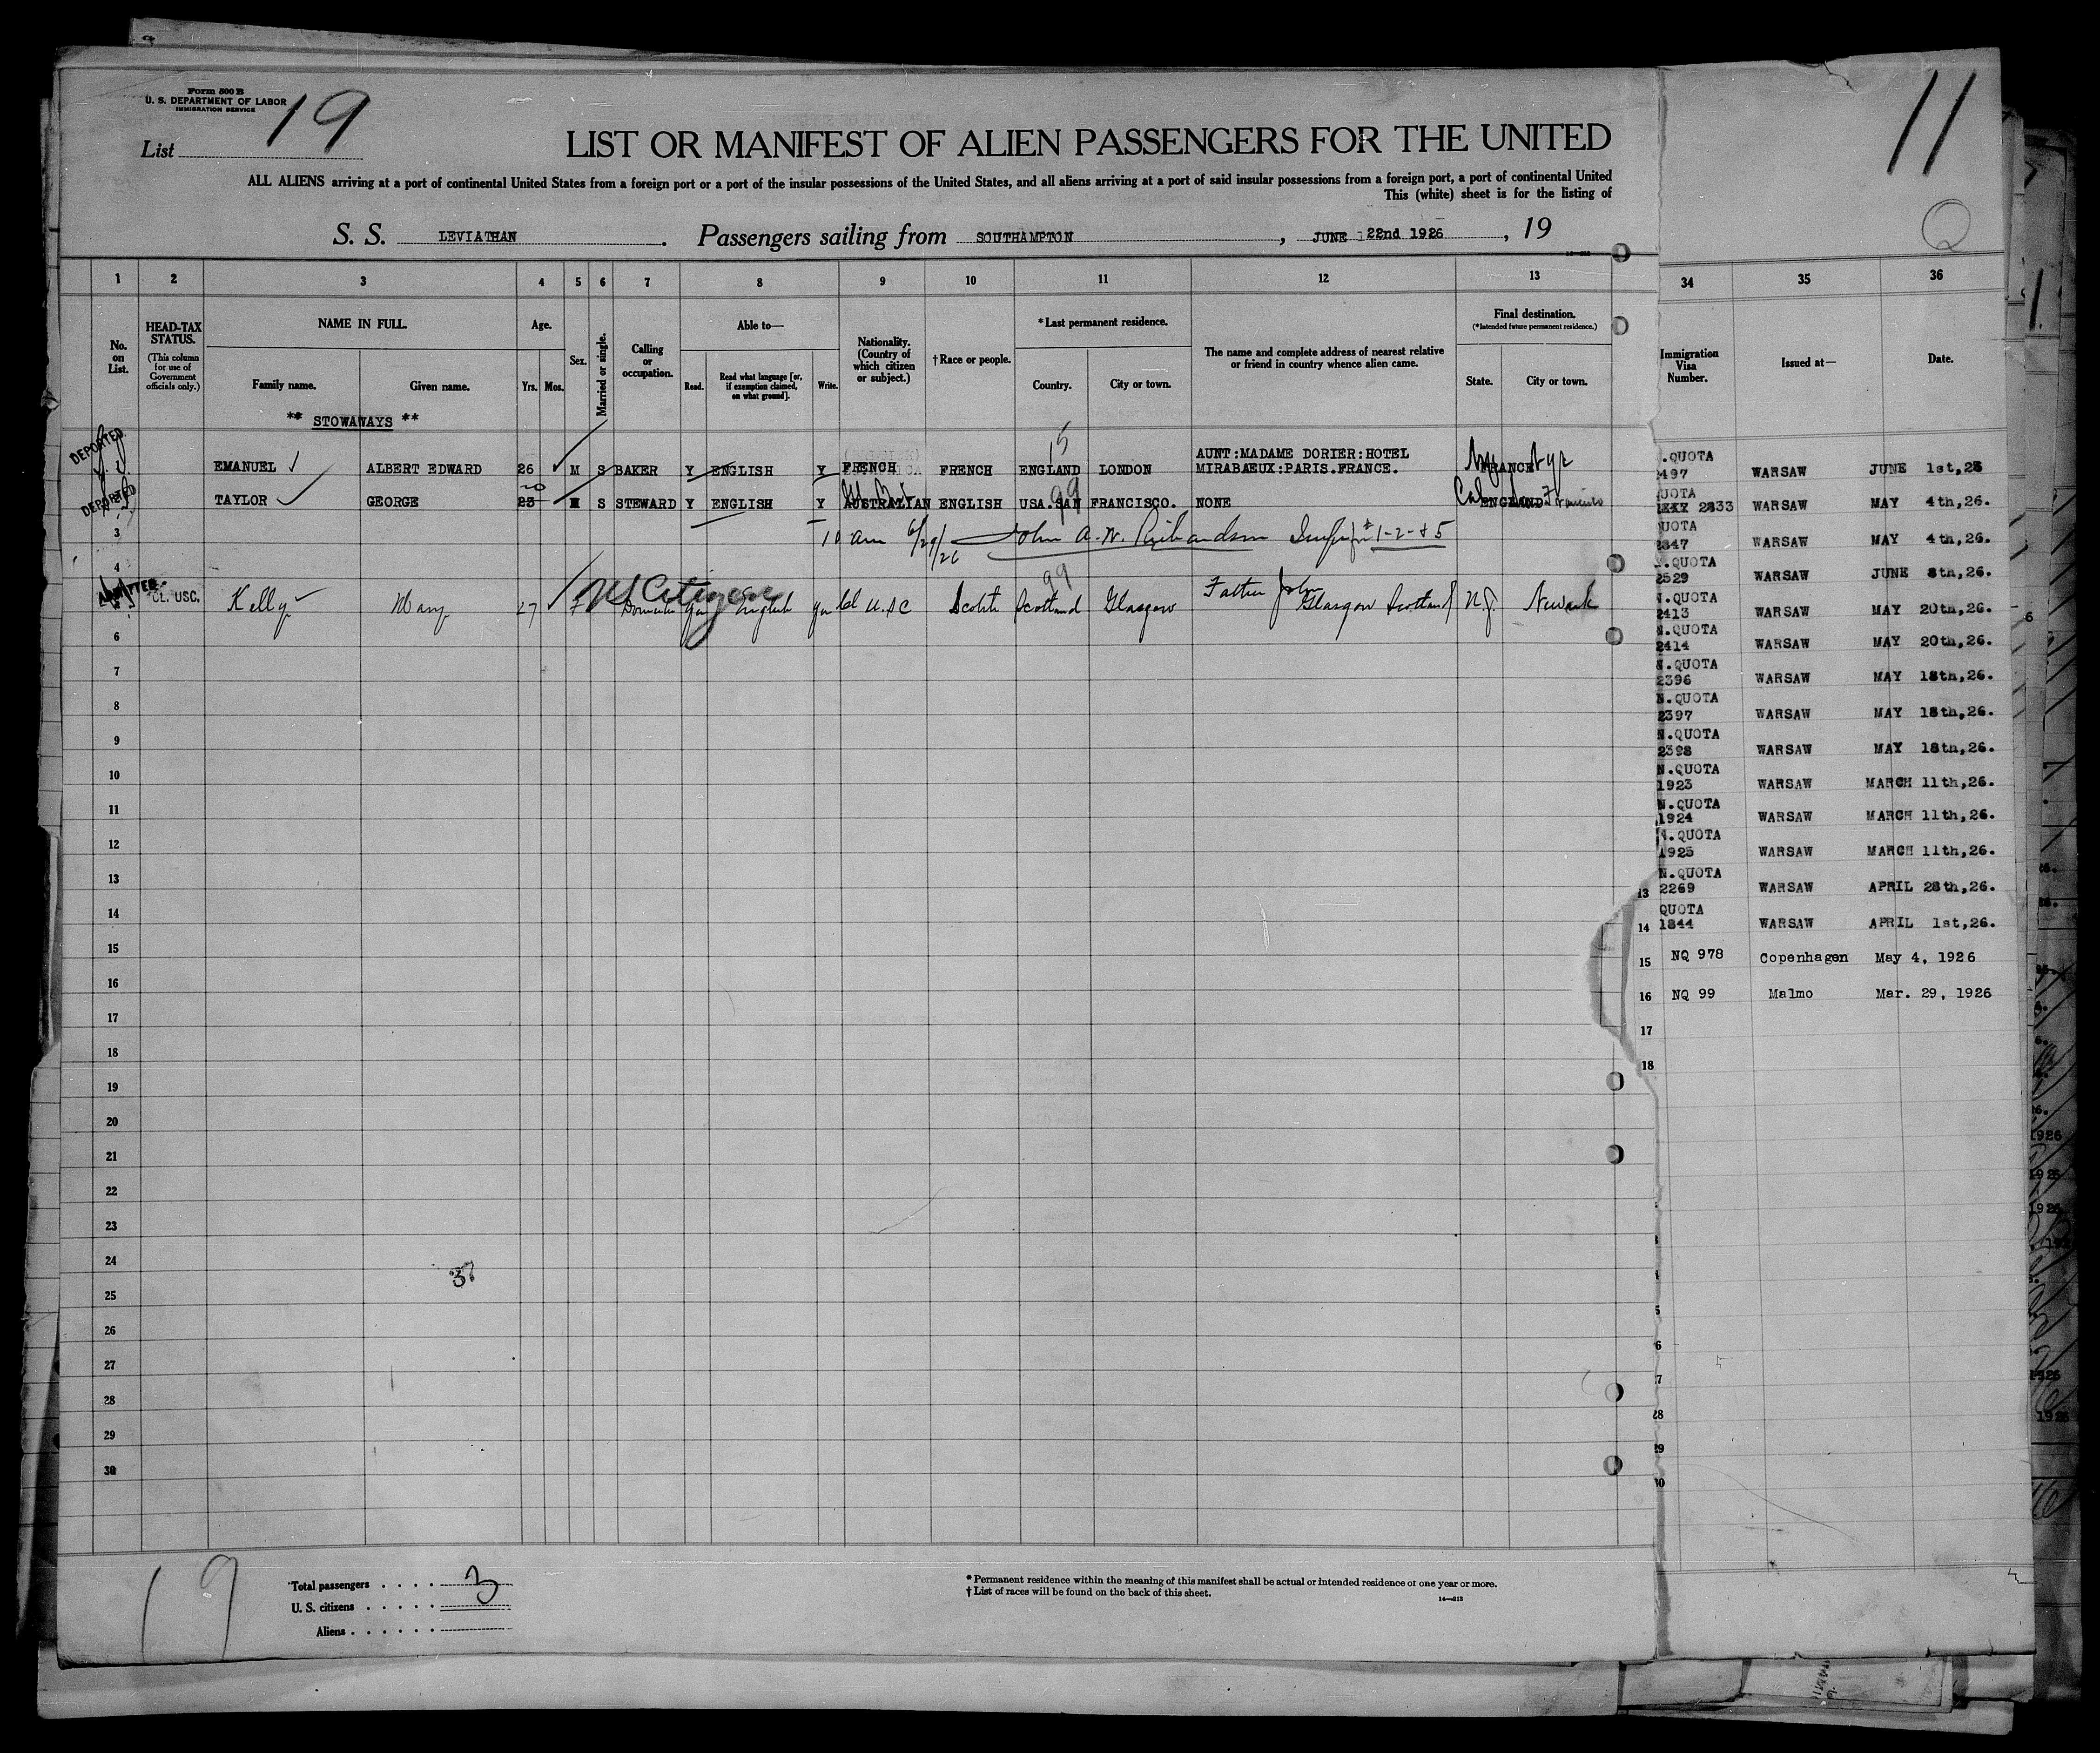 Form 500 B
U. S. DEPARTMENT OF LABOR
IMMIGRATION SERVICE
List 19
11
Q
LIST OR MANIFEST OF ALIEN PASSENGERS FOR THE UNITED
ALL ALIENS arriving at a port of continental United States from a foreign port or a port of the insular possessions of the United States, and all aliens arriving at a port of said insular possessions from a foreign port, a port of continental United
This (white) sheet is for the listing of
S. S. LEVIATHAN. Passengers sailing from SOUTHAMPTON, JUNE 22nd 1926, 19
1 2 3 4 5 6 7 8 9 10 11 12 13
No. on List.
HEAD-TAX STATUS.
(This column for use of Government officials only.)
NAME IN FULL.
Family name. Given name.
Age.
Yrs. Mos.
Sex.
Married or single.
Calling or occupation.
Able to—
Read. Read what language [or, if exemption claimed, on what ground]. Write.
Nationality. (Country of which citizen or subject.)
† Race or people.
* Last permanent residence.
Country. City or town.
The name and complete address of nearest relative or friend in country whence alien came.
Final destination.
(*Intended future permanent residence.)
State. City or town.
** STOWAWAYS **
DEPORTED
15
AUNT:MADAME DORIER:HOTEL
EMANUEL ALBERT EDWARD 26 M S BAKER Y ENGLISH Y FRENCH FRENCH ENGLAND LONDON MIRABAEUX:PARIS.FRANCE. FRANCE
DEPORTED
20
99
TAYLOR GEORGE 25 M S STEWARD Y ENGLISH Y AUSTRALIAN ENGLISH USA.SAN FRANCISCO. NONE ENGLAND Cal San Francisco
3 10 am 6/29/26 John A. W. Richardson 1-2-&5
4
ADMITTED
US Citizen
99
CL. USC. Kelly Mary 27 F Domestic Yes English Yes U.S.C Scotch Scotland Glasgow Father John Glasgow Scotland N.J. Newark
6
7
8
9
10
11
12
13
14
15
16
17
18
19
20
21
22
23
24
37
25
26
27
28
29
30
19
Total passengers 3
U. S. citizens
Aliens
* Permanent residence within the meaning of this manifest shall be actual or intended residence of one year or more.
† List of races will be found on the back of this sheet.
14—212
34 35 36
Immigration Visa Number. Issued at— Date.
.QUOTA
2497 WARSAW JUNE 1st,25
QUOTA
2833 WARSAW MAY 4th,26.
QUOTA
2347 WARSAW MAY 4th,26.
.QUOTA
2529 WARSAW JUNE 8th,26.
N.QUOTA
2413 WARSAW MAY 20th,26.
N.QUOTA
2414 WARSAW MAY 20th,26.
N.QUOTA
2396 WARSAW MAY 18th,26.
N.QUOTA
2397 WARSAW MAY 18th,26.
N.QUOTA
2398 WARSAW MAY 18th,26.
N.QUOTA
1923 WARSAW MARCH 11th,26.
N.QUOTA
1924 WARSAW MARCH 11th,26.
N.QUOTA
1925 WARSAW MARCH 11th,26.
N.QUOTA
13 2269 WARSAW APRIL 28th,26.
QUOTA
14 1844 WARSAW APRIL 1st,26.
15 NQ 978 Copenhagen May 4, 1926
16 NQ 99 Malmo Mar. 29, 1926
17
18